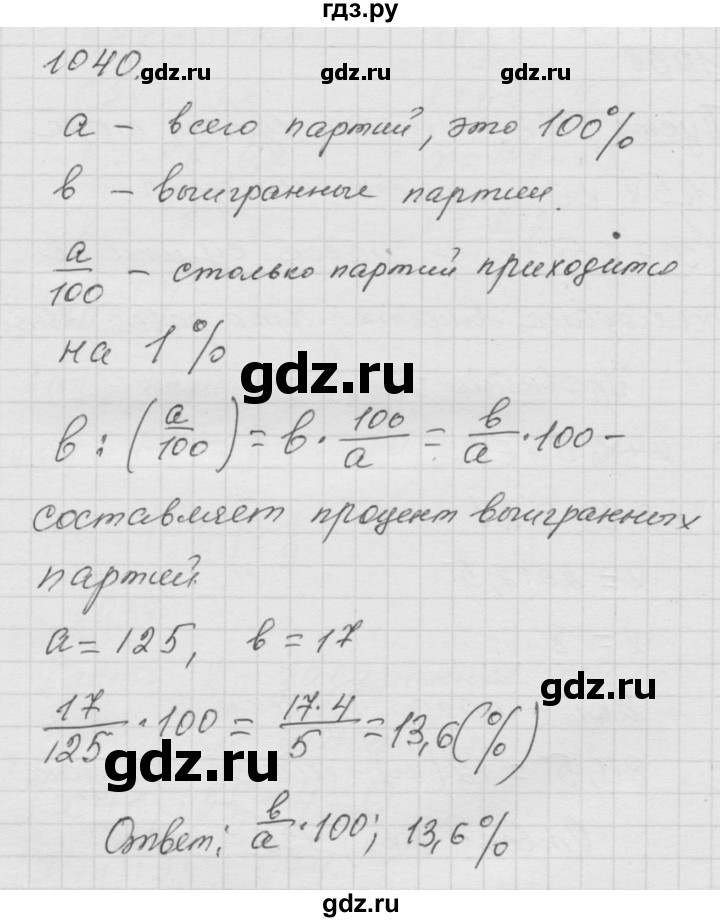 гдз.ру
1040.
gdz.ru gdz.ru
a – всего партий, это 100%
в – выигранные партии.
gdz.ru gdz.ru
a/100 – столько партий приходится
на 1%
gdz.ru
в : (a/100) = в · 100/a = в/a · 100 –
составляет процент выигранных
партий.
a = 125, в = 17
gdz.ru
17/125 · 100 = 17·4/5 = 13,6 (%)
gdz.ru
Ответ: в/a · 100; 13,6%
gdz.ru